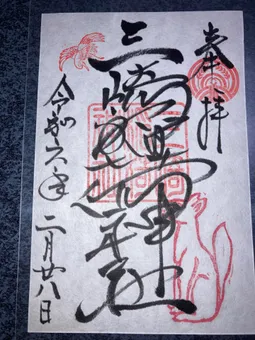 奉拝
三崎稲荷神社
令和六年二月廿八日